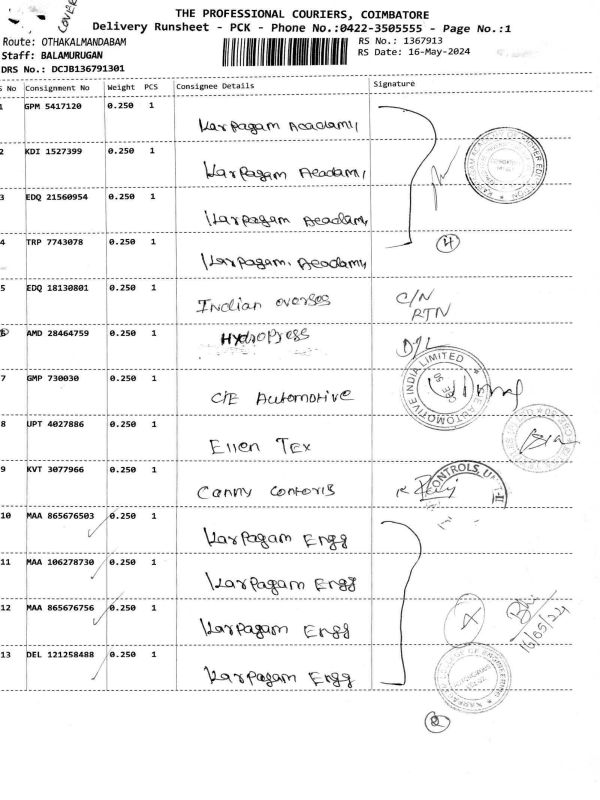 COVER
THE PROFESSIONAL COURIERS, COIMBATORE
Delivery Runsheet - PCK - Phone No.:0422-3505555 - Page No.:1
Route: OTHAKALMANDABAM
RS No.: 1367913
Staff: BALAMURUGAN
RS Date: 16-May-2024
DRS No.: DCJB136791301
S No Consignment No Weight PCS Consignee Details Signature
1 GPM 5417120 0.250 1 Karpagam Acadamy
2 KDI 1527399 0.250 1 Karpagam Acadamy
3 EDQ 21560954 0.250 1 Karpagam Acadamy
4 TRP 7743078 0.250 1 Karpagam. Acadamy
5 EDQ 18130801 0.250 1 Indian overses C/N RTN
AMD 28464759 0.250 1 HydroPress D/L
7 GMP 730030 0.250 1 CIE Automotive AUTOMOTIVE INDIA LIMITED
8 UPT 4027886 0.250 1 Ellen Tex
9 KVT 3077966 0.250 1 Canny Contorls CONTROLS, UNIT-II
10 MAA 865676503 0.250 1 Karpagam Engg
11 MAA 106278730 0.250 1 Karpagam Engg
12 MAA 865676756 0.250 1 Karpagam Engg 16/05/24
13 DEL 121258488 0.250 1 Karpagam Engg COLLEGE OF ENGINEERING